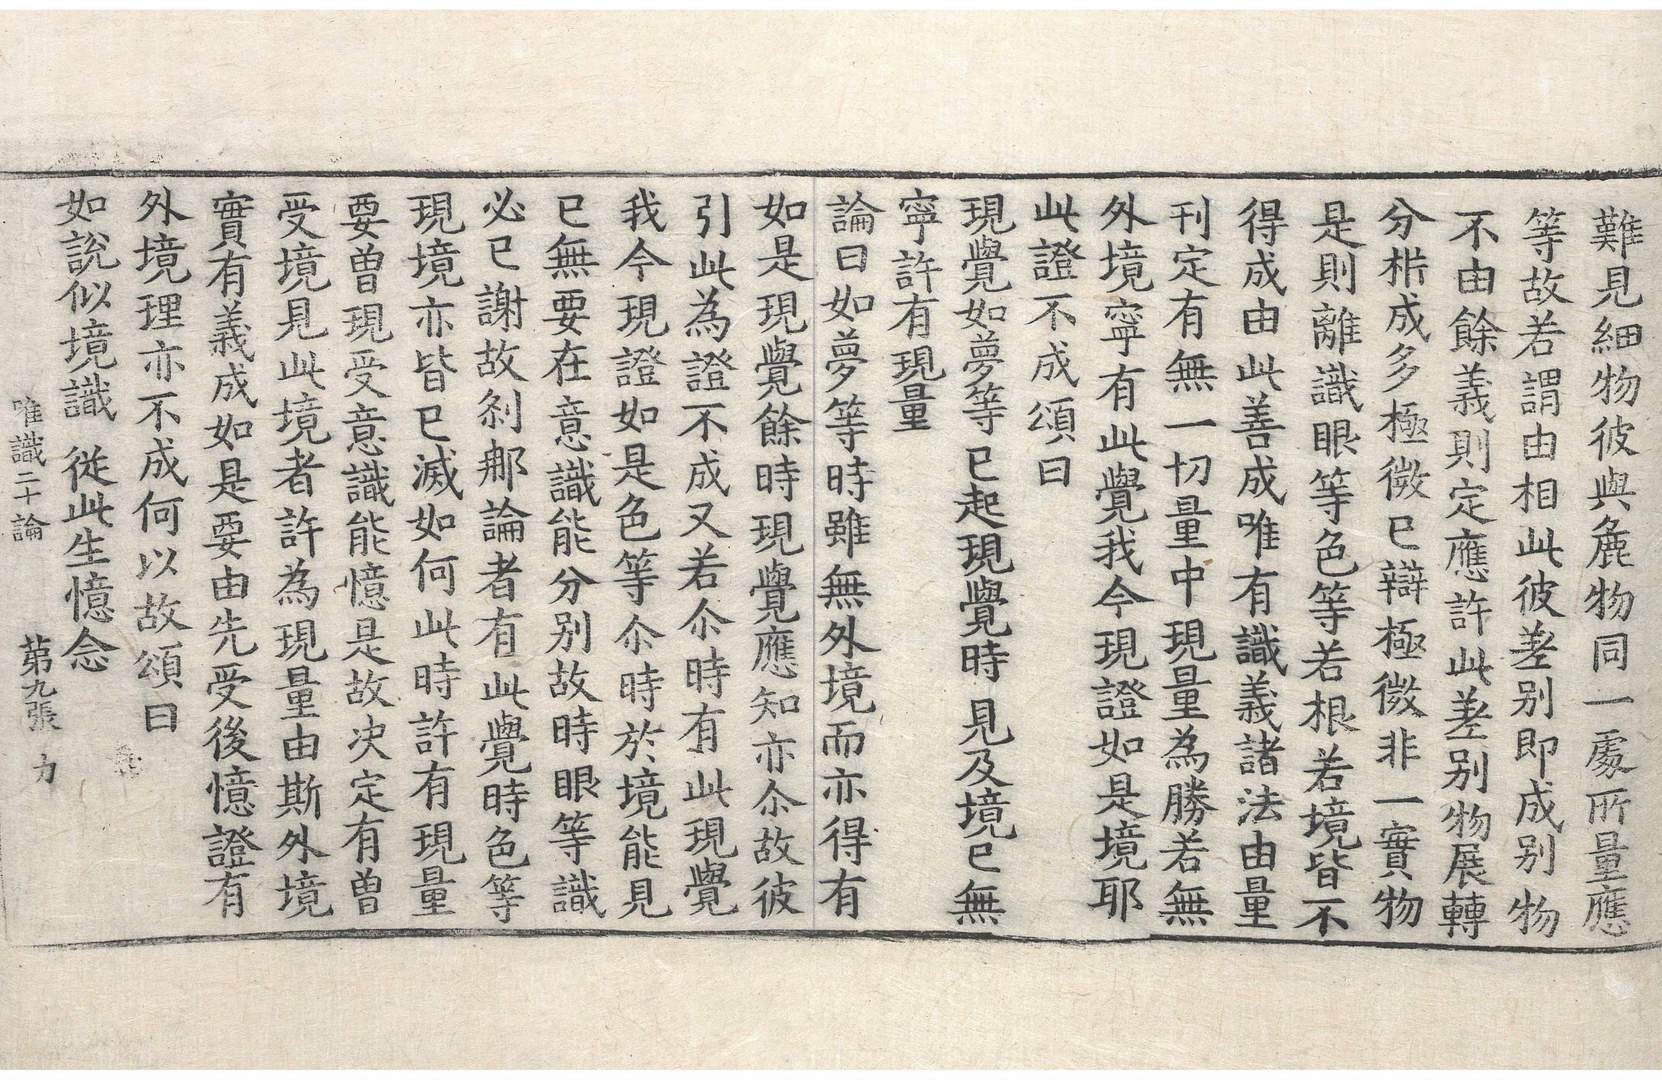 難見細物彼與麁物同一處所量應
等故若謂由相此彼差別即成別物
不由餘義則定應許此差别物展轉
分析成多極微已辯極微非一實物
是則離識眼等色等若根若境皆不
得成由此善成唯有識義諸法由量
刊定有無一切量中現量為勝若無
外境寧有此覺我今現證如是境耶
此證不成頌曰
現覺如夢等 已起現覺時 見及境已無
寧許有現量
論曰如夢等時雖無外境而亦得有
如是現覺餘時現覺應知亦尒故彼
引此為證不成又若尒時有此現覺
我今現證如是色等尒時於境能見
已無要在意識能分别故時眼等識
必已謝故刹那論者有此覺時色等
現境亦皆已滅如何此時許有現量
要曾現受意識能憶是故決定有曾
受境見此境者許為現量由斯外境
實有義成如是要由先受後憶證有
外境理亦不成何以故頌曰
如說似境識 從此生憶念
唯識二十論 第九張 力